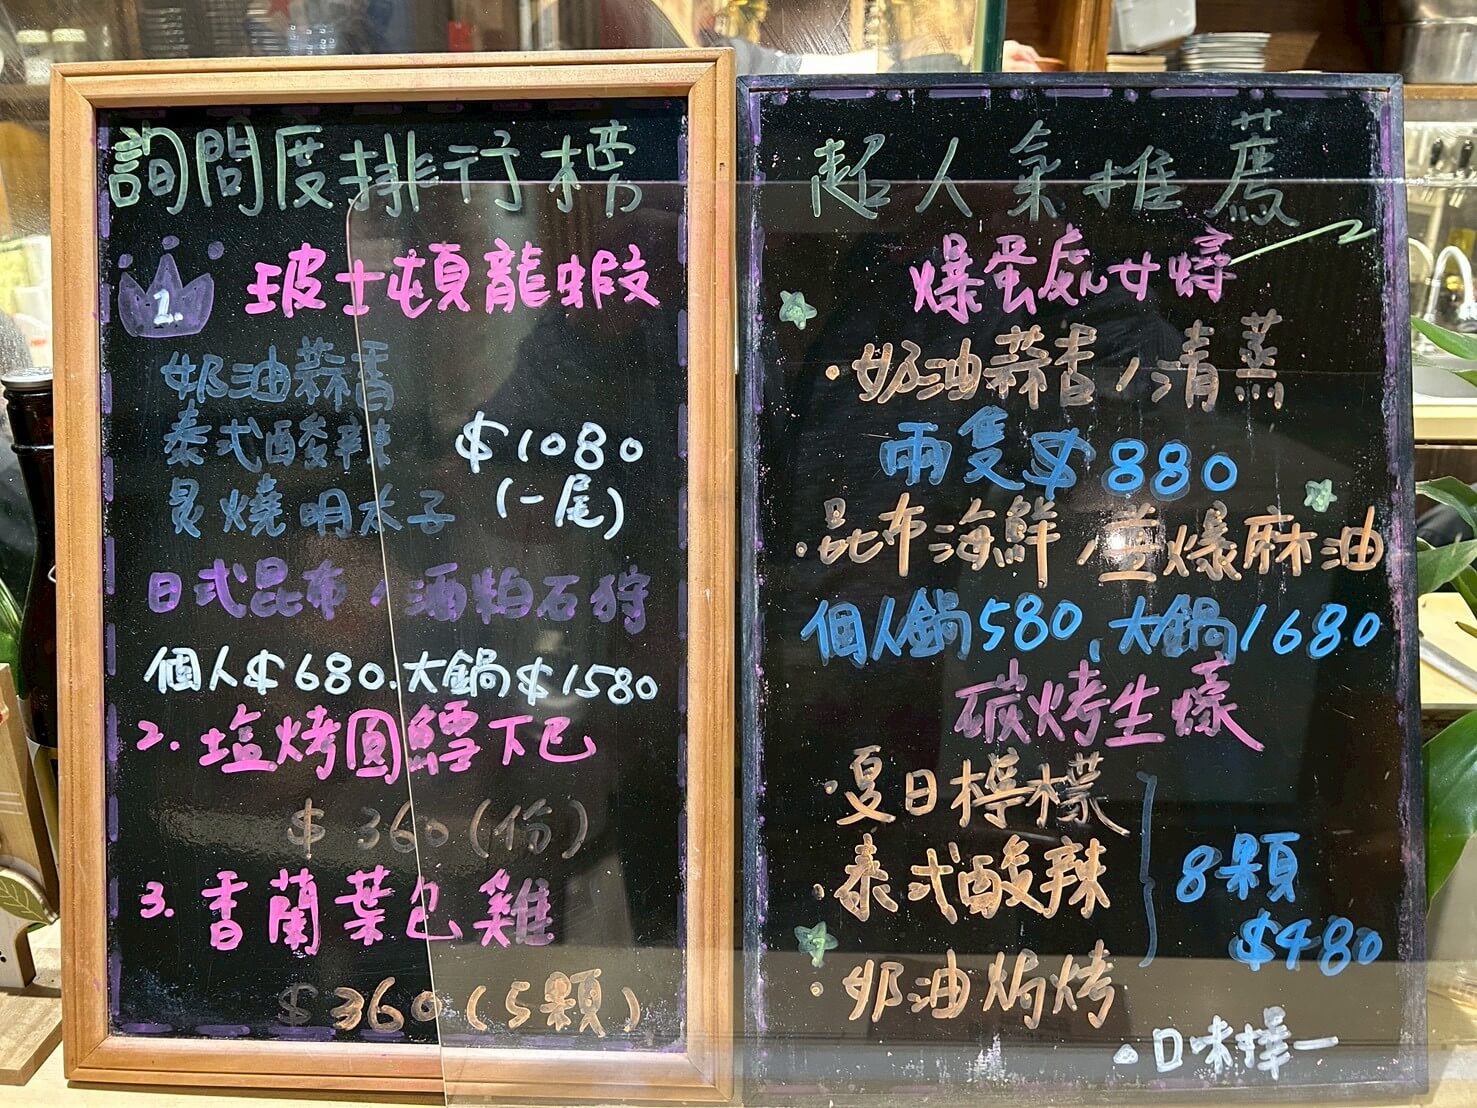 詢問度排行榜
1.
玻士頓龍蝦
奶油蒜香
泰式酸辣
炙燒明太子
$1080
(一尾)
日式昆布/酒粕石狩
個人$680.大鍋$1580
2.塩烤圓鱈下巴
$360(份)
3.香蘭葉包雞
$360(5顆)
超人氣推薦
爆蛋處女蟳
·奶油蒜香/清蒸
兩隻$880
·昆布海鮮/薑爆麻油
個人鍋580、大鍋1680
碳烤生蠔
·夏日檸檬
·泰式酸辣
·奶油焗烤
8顆
$480
口味擇一